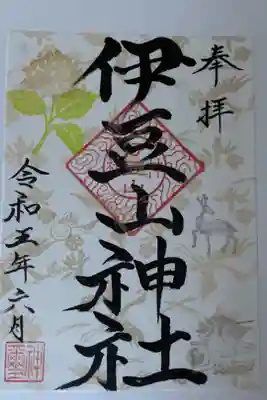 奉拝
伊豆山神社
令和五年六月